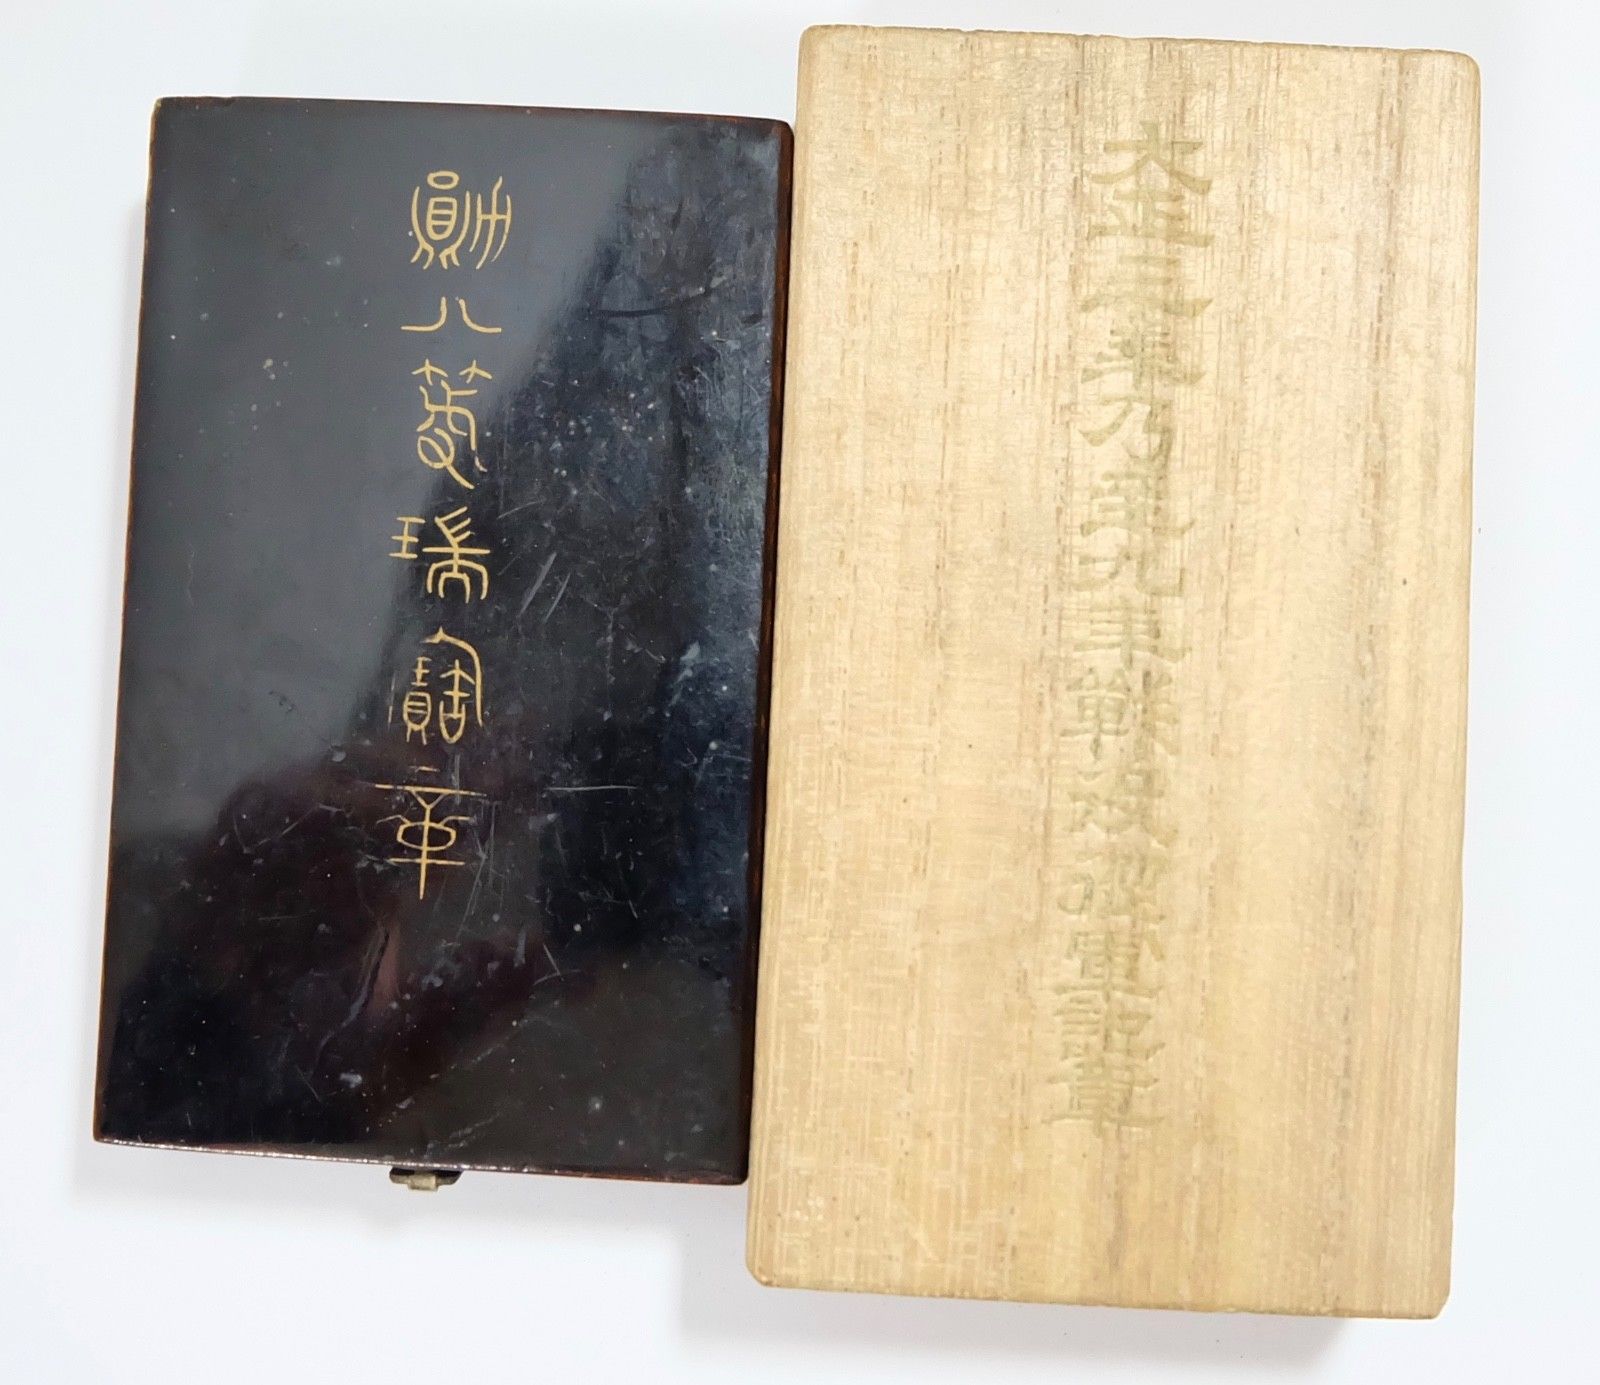 勛八等瑞寶章
大正三年乃至九年戰役從軍記章